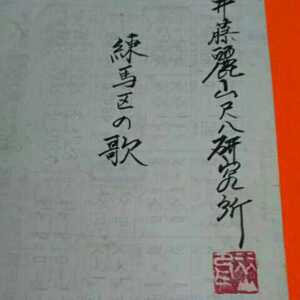 井藤麗山尺八研究所
練馬区の歌